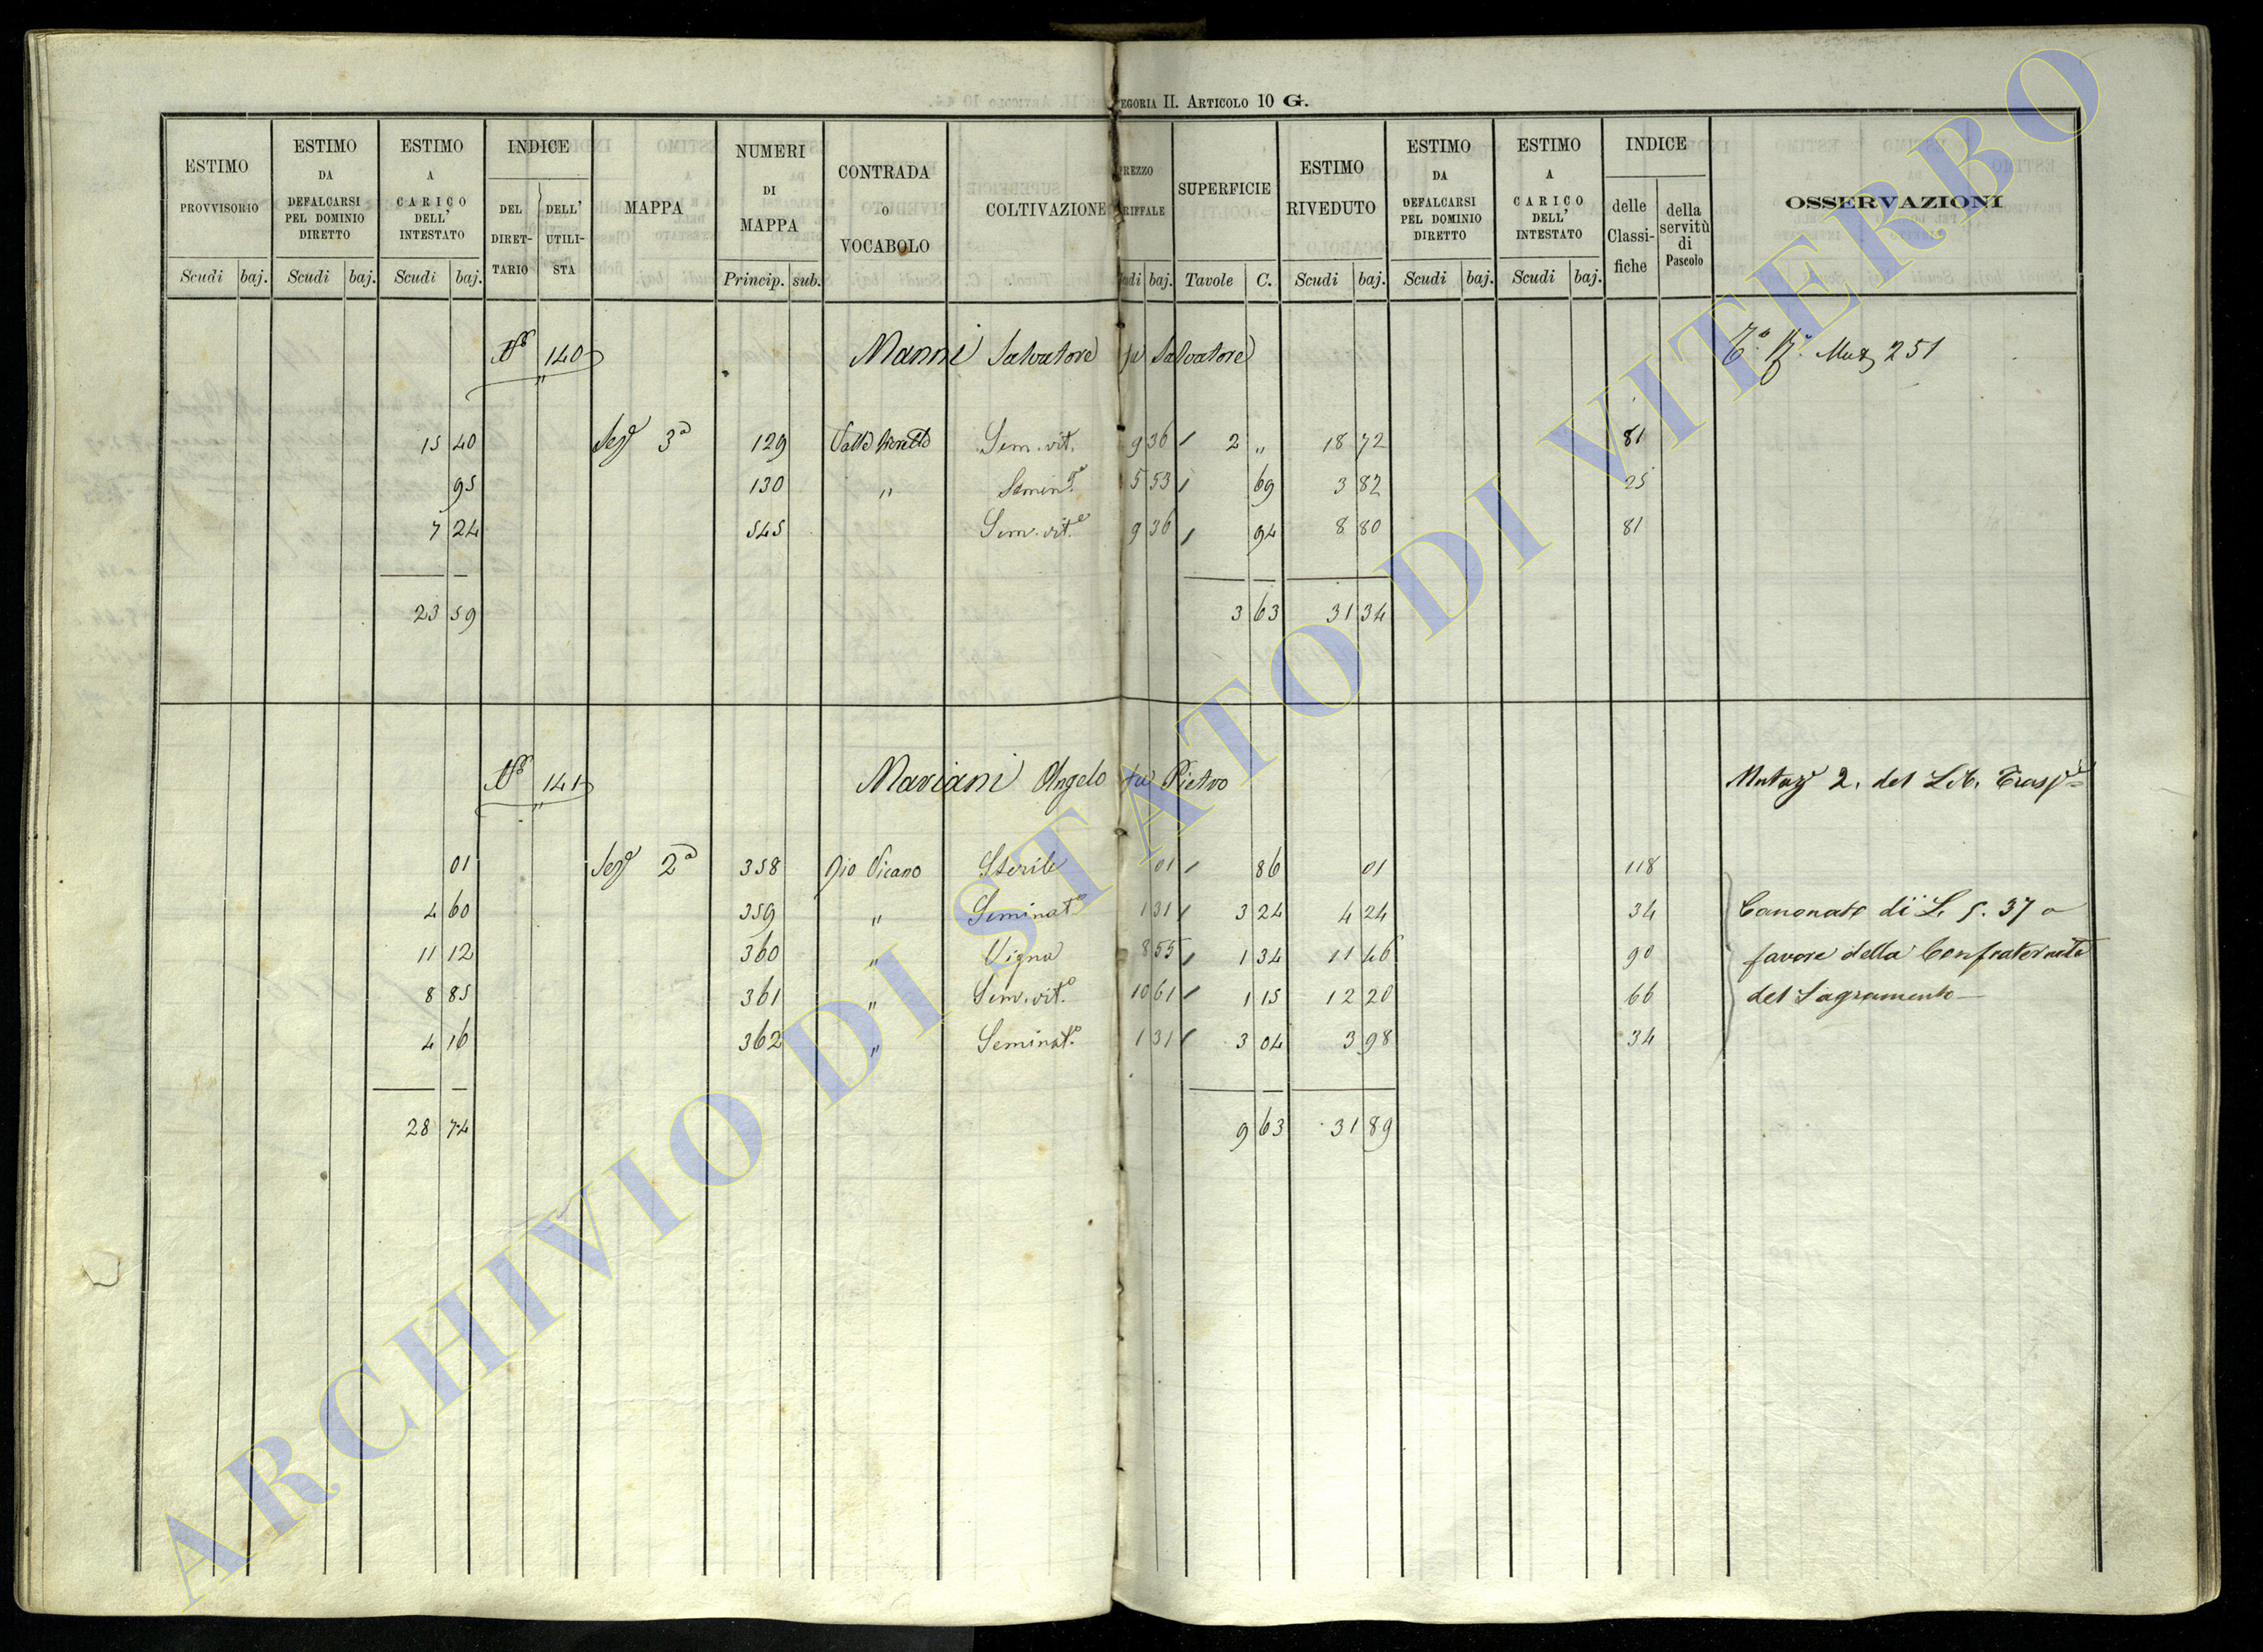 EGORIA II. ARTICOLO 10 G.
ESTIMO PROVVISORIO | ESTIMO DA DEFALCARSI PEL DOMINIO DIRETTO | ESTIMO A CARICO DELL' INTESTATO | INDICE | MAPPA | NUMERI DI MAPPA | CONTRADA O VOCABOLO | COLTIVAZIONE | REZZO RIFFALE | SUPERFICIE | ESTIMO RIVEDUTO | ESTIMO DA DEFALCARSI PEL DOMINIO DIRETTO | ESTIMO A CARICO DELL' INTESTATO | INDICE | OSSERVAZIONI
DEL DIRETTARIO | DELL' UTILISTA | delle Classifiche | della servitù di Pascolo
Scudi baj. | Scudi baj. | Scudi baj. | Princip. sub. | udi baj. | Tavole C. | Scudi baj. | Scudi baj. | Scudi baj.
140 Manni Salvatore fu Salvatore 251
15 40 Sez 3a 129 Valle Sem. vit. 9 36 2 " 18 72 81
95 130 " Semin 5 53 69 3 82 25
7 24 545 Sem. vit. 9 36 94 8 80 81
23 59 3 63 31 34
141 Mariani Angelo fu Pietro 2. del
01 Sez 2a 358 Rio Vicano Sterile 01 86 01 118
4 60 359 " Seminato 1 31 3 24 4 24 34 Canonato di L. 5. 37 a
11 12 360 " Vigna 8 55 1 34 11 46 90 favore della Confraternita
8 85 361 " Sem. vit. 10 61 1 15 12 20 66 del Sagramento
4 16 362 " Seminato 1 31 3 04 3 98 34
28 74 9 63 31 89
ARCHIVIO DI STATO DI VITERBO